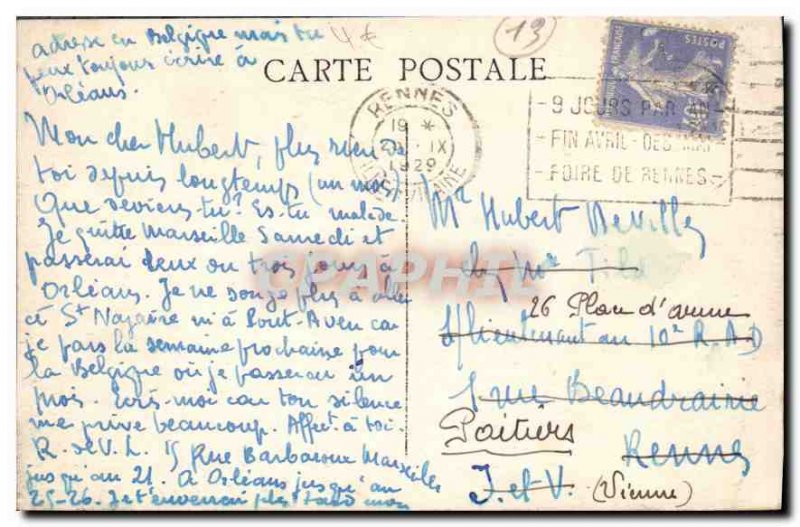 adresse en Belgique mais tu
peux toujours écrire à
Orléans.
4 €
13
CARTE POSTALE
POSTES
RENNES
19 *
IX
1929
ILLE-ET-VILAINE
- 9 JOURS PAR AN -
- FIN AVRIL-DES MAI -
- FOIRE DE RENNES -
Mon cher Hubert, plus rien de
toi depuis longtemps (un mois)
Que deviens-tu? Es-tu malade.
Je quitte Marseille Samedi et
passerai deux ou trois jours à
Orléans. Je ne songe plus à
St Nazaire ni à Pont-Aven car
je pars la semaine prochaine pour
la Belgique où je passerai un
mois. Ecris-moi car ton silence
me prive beaucoup. Affect. à toi.
R. de V. L. 15 Rue Barbaroux Marseille
jusqu'au 21. à Orléans jusqu'au
25-26. Je t'enverrai plus tard mon
CPAPHIL
Mr Hubert Devilles
26 Place d'arme
S/lieutenant au 10e R.A.D
1 rue Beaudrairie
Poitiers
Rennes
I. et V.
(Vienne)